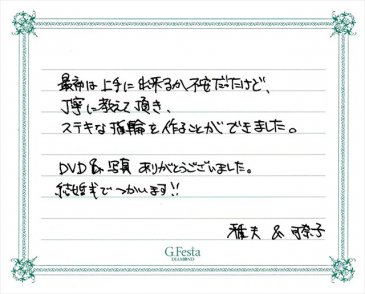 最初は上手に出来るか不安だったけど、
丁寧に教えて頂き、
ステキな指輪を作ることができました。
DVD&写真 ありがとうございました。
結婚式でつかいます!!
雅夫 & 可奈子
G.Festa
DIAMOND